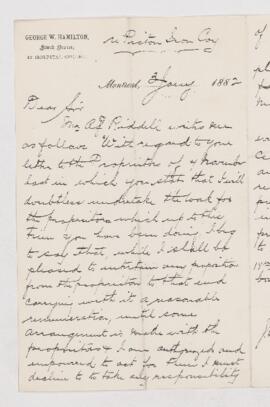 GEORGE W. HAMILTON,
Montreal, 3 Jany 1882
Dear Sir
Mr A F Riddell writes me
as follows "With regard to your
letter to the Proprietors of
last in which you state that I will
doubtless undertake the work for
the proprietors which up to this
time you have been doing. I beg
to say that, while I shall be
pleased to entertain any proposition
from the proprietors to that end
carrying with it a reasonable
remuneration, until some
arrangement is made with the
proprietors & I am authorized and
empowered to act for them I must
decline to take any responsibility